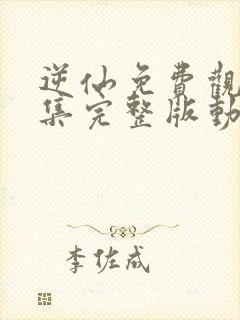 逆仙免費觀
集完整版動
李佐成